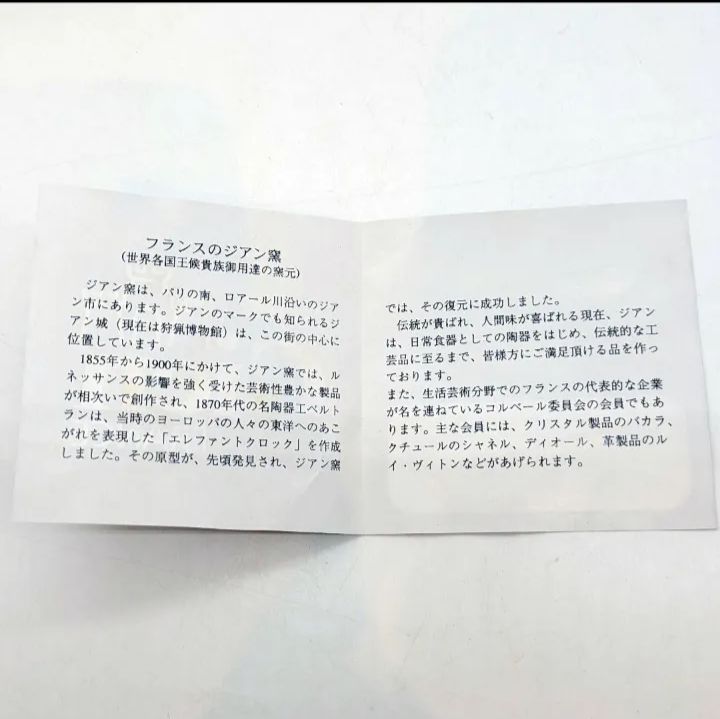 フランスのジアン窯
(世界各国王候貴族御用達の窯元)
ジアン窯は、パリの南、ロアール川沿いのジア
ン市にあります。ジアンのマークでも知られるジ
アン城（現在は狩猟博物館）は、この街の中心に
位置しています。
1855年から1900年にかけて、ジアン窯では、ル
ネッサンスの影響を強く受けた芸術性豊かな製品
が相次いで創作され、1870年代の名陶器工ベルト
ランは、当時のヨーロッパの人々の東洋へのあこ
がれを表現した「エレファントクロック」を作成
しました。その原型が、先頃発見され、ジアン窯
では、その復元に成功しました。
伝統が貴ばれ、人間味が喜ばれる現在、ジアン
は、日常食器としての陶器をはじめ、伝統的な工
芸品に至るまで、皆様方にご満足頂ける品を作っ
ております。
また、生活芸術分野でのフランスの代表的な企業
が名を連ねているコルベール委員会の会員でもあ
ります。主な会員には、クリスタル製品のバカラ、
クチュールのシャネル、ディオール、革製品のル
イ・ヴィトンなどがあげられます。